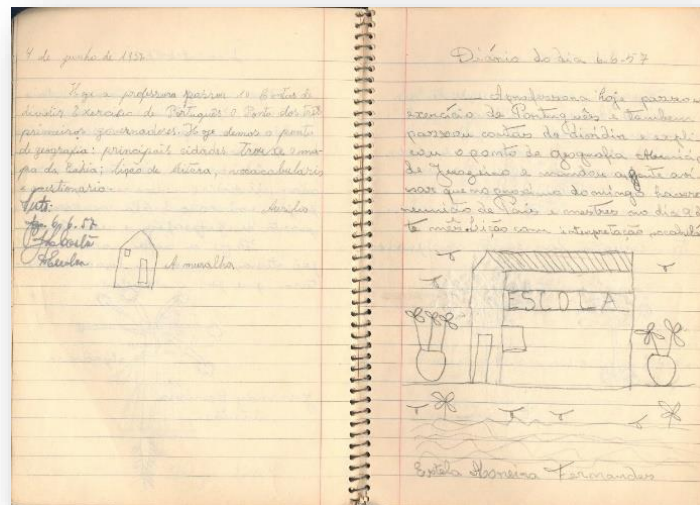 4 de junho de 1957
Hoje a professora passou 10 contas de
dividir Exercício de Português o Ponto dos três
primeiros governadores. Hoje demos o ponto
de geografia: principais cidades trouxe o ma-
pa da Bahia; lição de leitura, vocabulario
e questionario.
Visto:
6/6.57
A muralha
Diário do dia 6.6.57
A professora hoje passou
exercício de Português e também
passou contas de dividir e expli
cou o ponto de geografia
de Juazeiro e mandou agente
nar que no domingo havera
reunião de Pais e mestres no dia 9
te mês. Lição com interpretação,
ESCOLA
Estela Moreira Fernandes